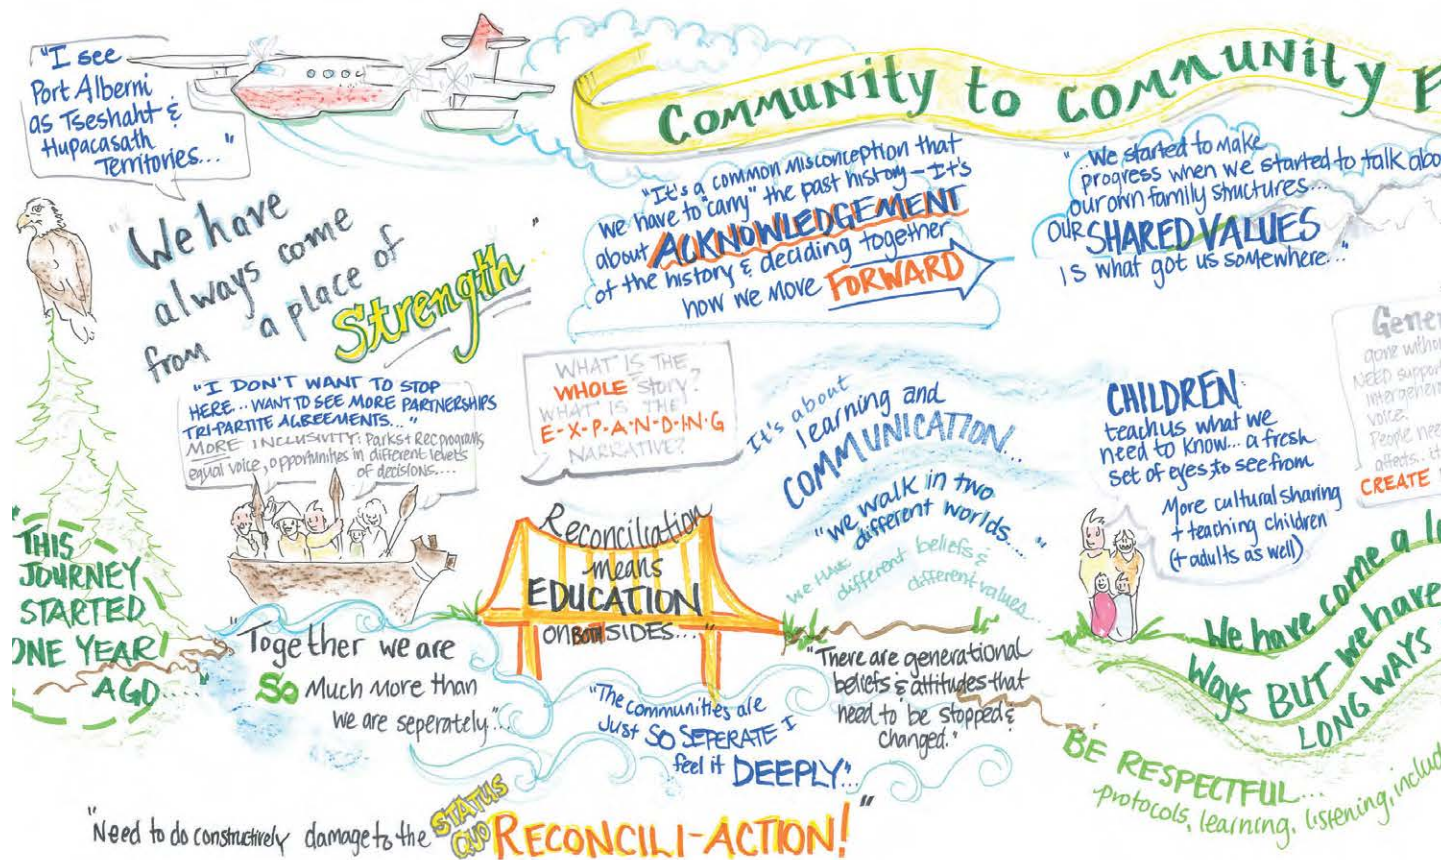 "I see
Port Alberni
as Tseshaht &
Hupacasath
Territories..."
Community to Community F
"We have
always come
from a place of
Strength..."
"It's a common misconception that
we have to "carry" the past history - It's
about ACKNOWLEDGEMENT
of the history & deciding together
how we move FORWARD
"...We started to make
progress when we started to talk abou
our own family structures...
our SHARED VALUES
is what got us somewhere..."
"I DON'T WANT TO STOP
HERE... WANT TO SEE MORE PARTNERSHIPS
TRI-PARTITE AGREEMENTS..."
MORE INCLUSIVITY: Parks + Rec programs
equal voice, opportunities in different levels
of decisions....
WHAT IS THE
WHOLE STORY?
WHAT IS THE
E-X-P-A-N-D-I-N-G
NARRATIVE?
It's about
learning and
COMMUNICATION...
"we walk in two
different worlds...."
we HAVE different beliefs &
different values
CHILDREN:
teach us what we
need to know... a fresh
set of eyes to see from
More cultural sharing
+ teaching children
(+ adults as well)
Gener
gone withou
NEED suppor
intergener
voice.
People nee
affects..
CREATE
"THIS
JOURNEY
STARTED
ONE YEAR
AGO...."
"Together we are
SO much more than
we are seperately"...
Reconciliation
means
EDUCATION
on BOTH SIDES..."
"The communities are
Just SO SEPERATE I
feel it DEEPLY"...
"There are generational
beliefs & attitudes that
need to be stopped &
changed."
We have come a lo
Ways BUT we have
LONG WAYS
BE RESPECTFUL...
protocols, learning, listening, includ
"Need to do constructively damage to the STATUS QUO RECONCILI-ACTION!"